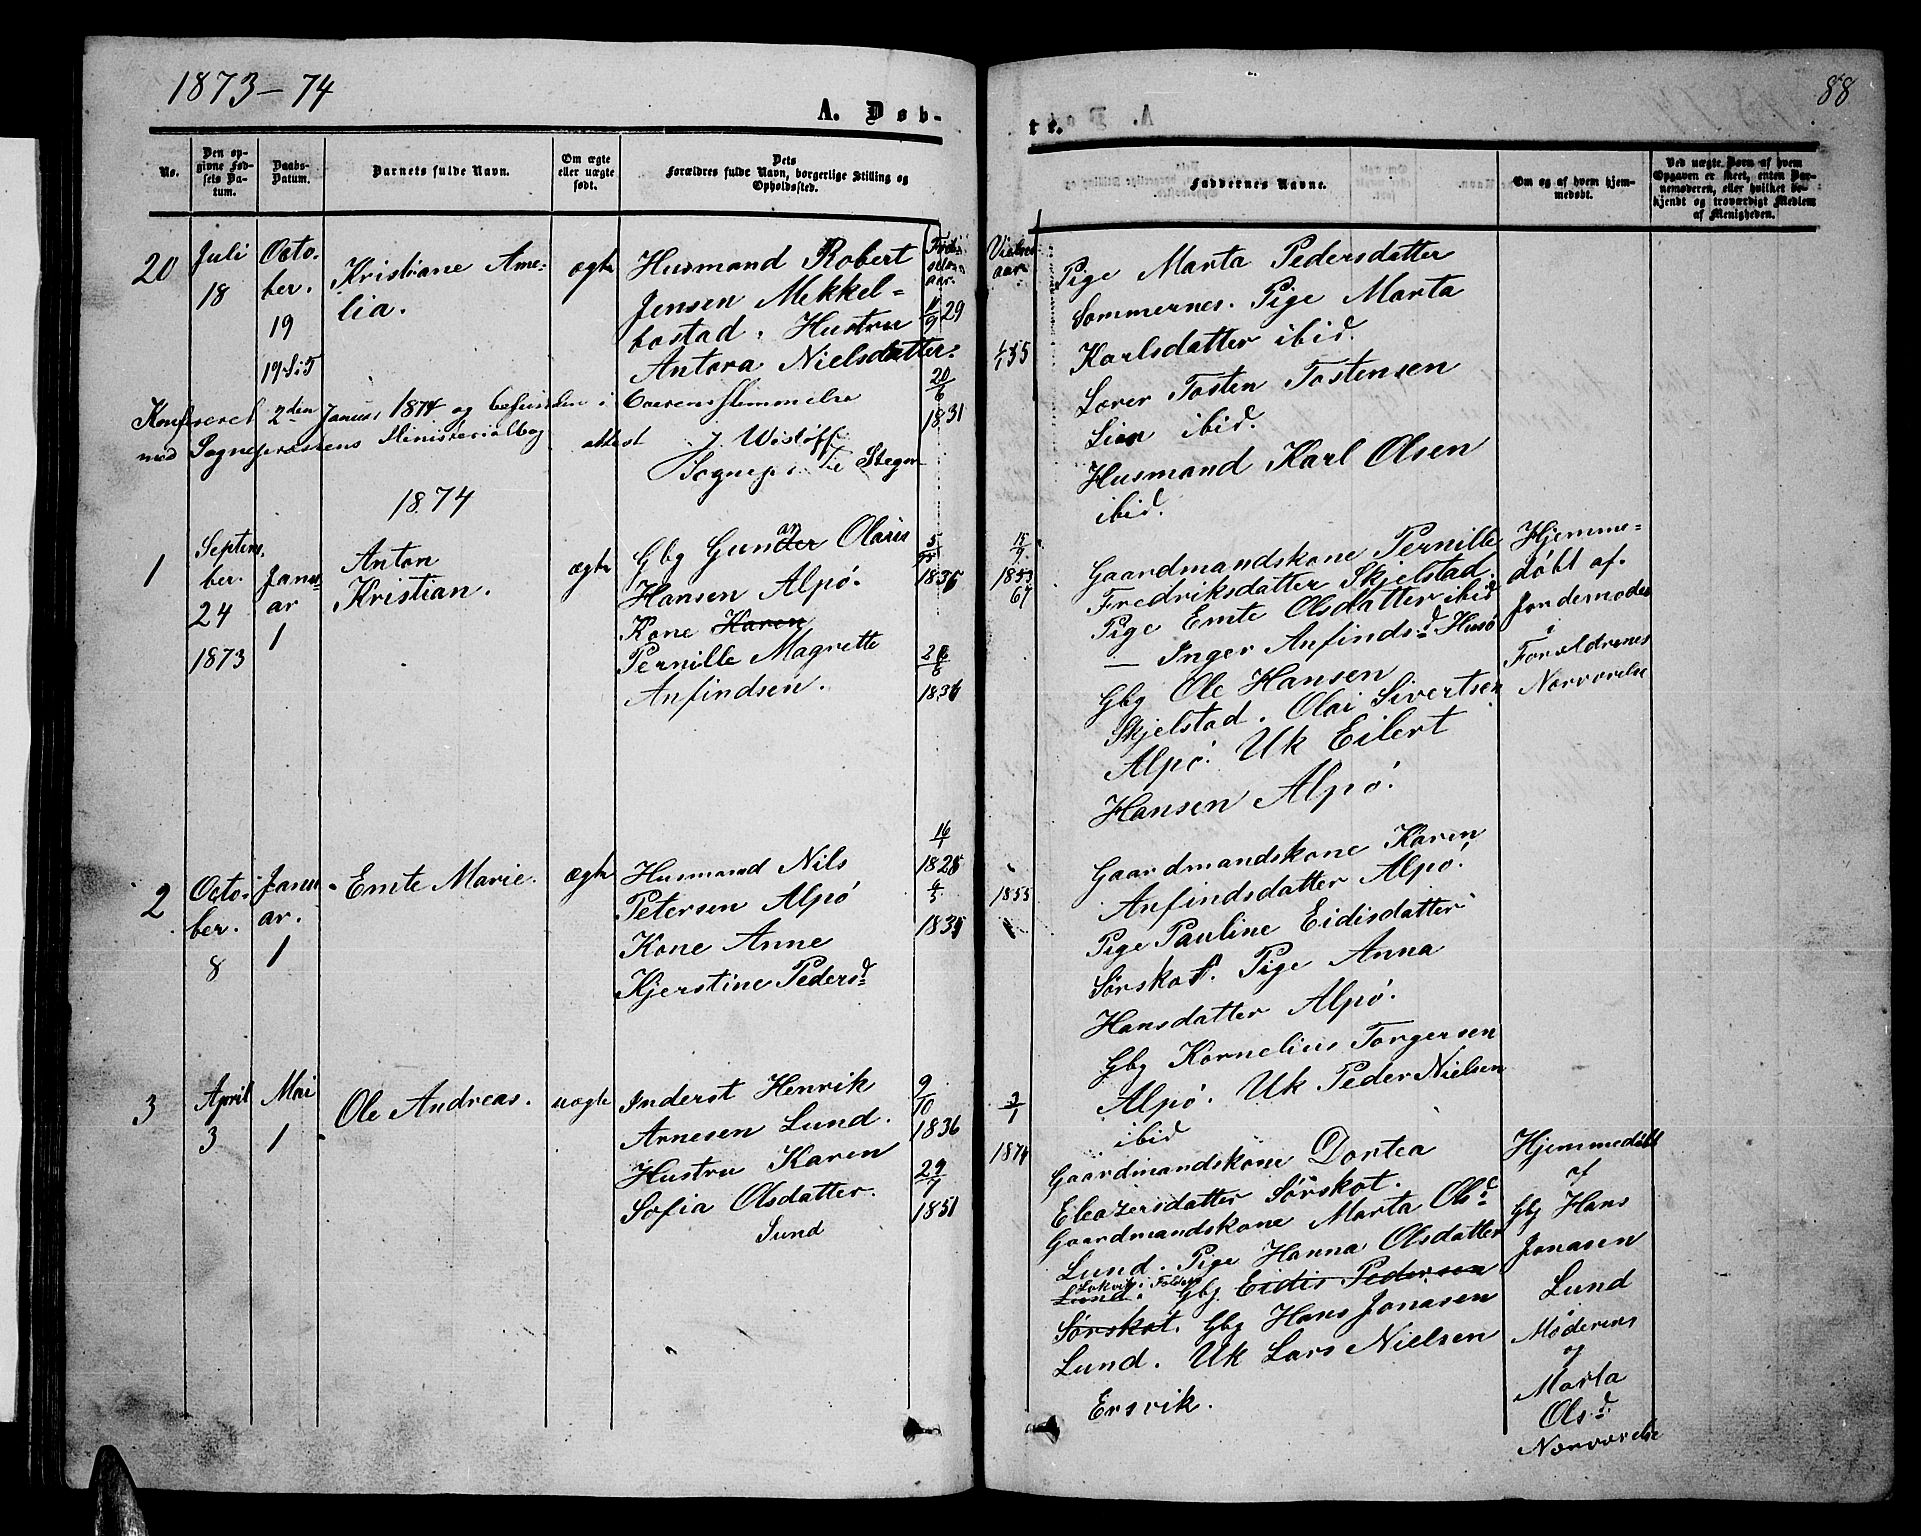 1873-74
88
A. Døb-
te.
No.
Den op-
givne Fød-
sels Da-
tum.
Daabs-
Datum.
Barnets fulde Navn.
Om ægte
eller uægte
født.
Dets
Forældres fulde Navn, borgerlige Stilling og
Opholdssted.
Faddernes Navne.
Om og af hvem hjem-
medøbt.
Ved uægte Børn af hvem
Opgaven er skeet, enten Bar-
nemoderen, eller hvilket be-
kjendt og troværdigt Medlem
af Menigheden.
20
Juli
18
Octo-
ber.
19
19 S. i T
Kristiane Ame-
lia.
ægte
Husmand Robert
Jensen Mekkel-
bostad. Hustru
Antora Nielsdatter.
29
20/6
1831
Vielses
aar.
55
Pige Marta Pedersdatter
Sommernes. Pige Marta
Karlsdatter ibid.
Lærer Tosten Tostensen
Lien ibid.
Husmand Karl Olsen
ibid.
Konfereret 2den Januar 1874 og befunden i Overensstemmelse
med Sognepræstens Ministerialbog attest J. Wisløff
Sognep. i Stegen
1874
1
Septem
ber.
24
1873
Janu-
ar
1
Anton
Kristian.
ægte
Gbg Gunder Olaus
Hansen Alpø.
Kone Karen
Pernille Magrette
Anfindsen.
1853
67
Gaardmandskone Pernille
Fredriksdatter Skjelstad.
Pige Emte Olsdatter ibid
— Inger Anfindsd Husø
Gbg Ole Hansen
Skjelstad. Olai Sivertsen
Alpø. Uk Eilert
Hansen Alpø.
Hjemme-
døbt af
Jordemoder
i
Forældrenes
Nærværelse
2
Octo-
ber.
8
Janu-
ar.
1
Emte Marie.
ægte
Husmand Nils
Petersen Alpø
Kone Anne
Kjerstine Pedersd
16/1
1855
Gaardmandskone Karen
Anfindsdatter Alpø.
Pige Pauline Eidisdatter
Sørskot. Pige Anna
Hansdatter Alpø.
Gbg Kornelius Torgersen
Alpø. Uk Peder Nielsen
ibid
3
April
3
Mai
1
Ole Andreas.
uægte
Inderst Henrik
Arnesen Lund.
Hustru Karen
Sofia Olsdatter.
Lund
9/10
1836
29/7
1851
1874
Gaardmandskone Dortea
Eleazersdatter Sørskot.
Gaardmandskone Marta Olsd
Lund. Pige Hanna Olsdatter
Lund. Gbg Eidis Pedersen
Sørskot. Gbg Hans Jonasen
Lund. Uk Lars Nielsen
Ersvik.
Hjemmedøbt
af
Gbg Hans
Jonasen
Lund
Moderens
og
Marta
Olsd
Nærværelse